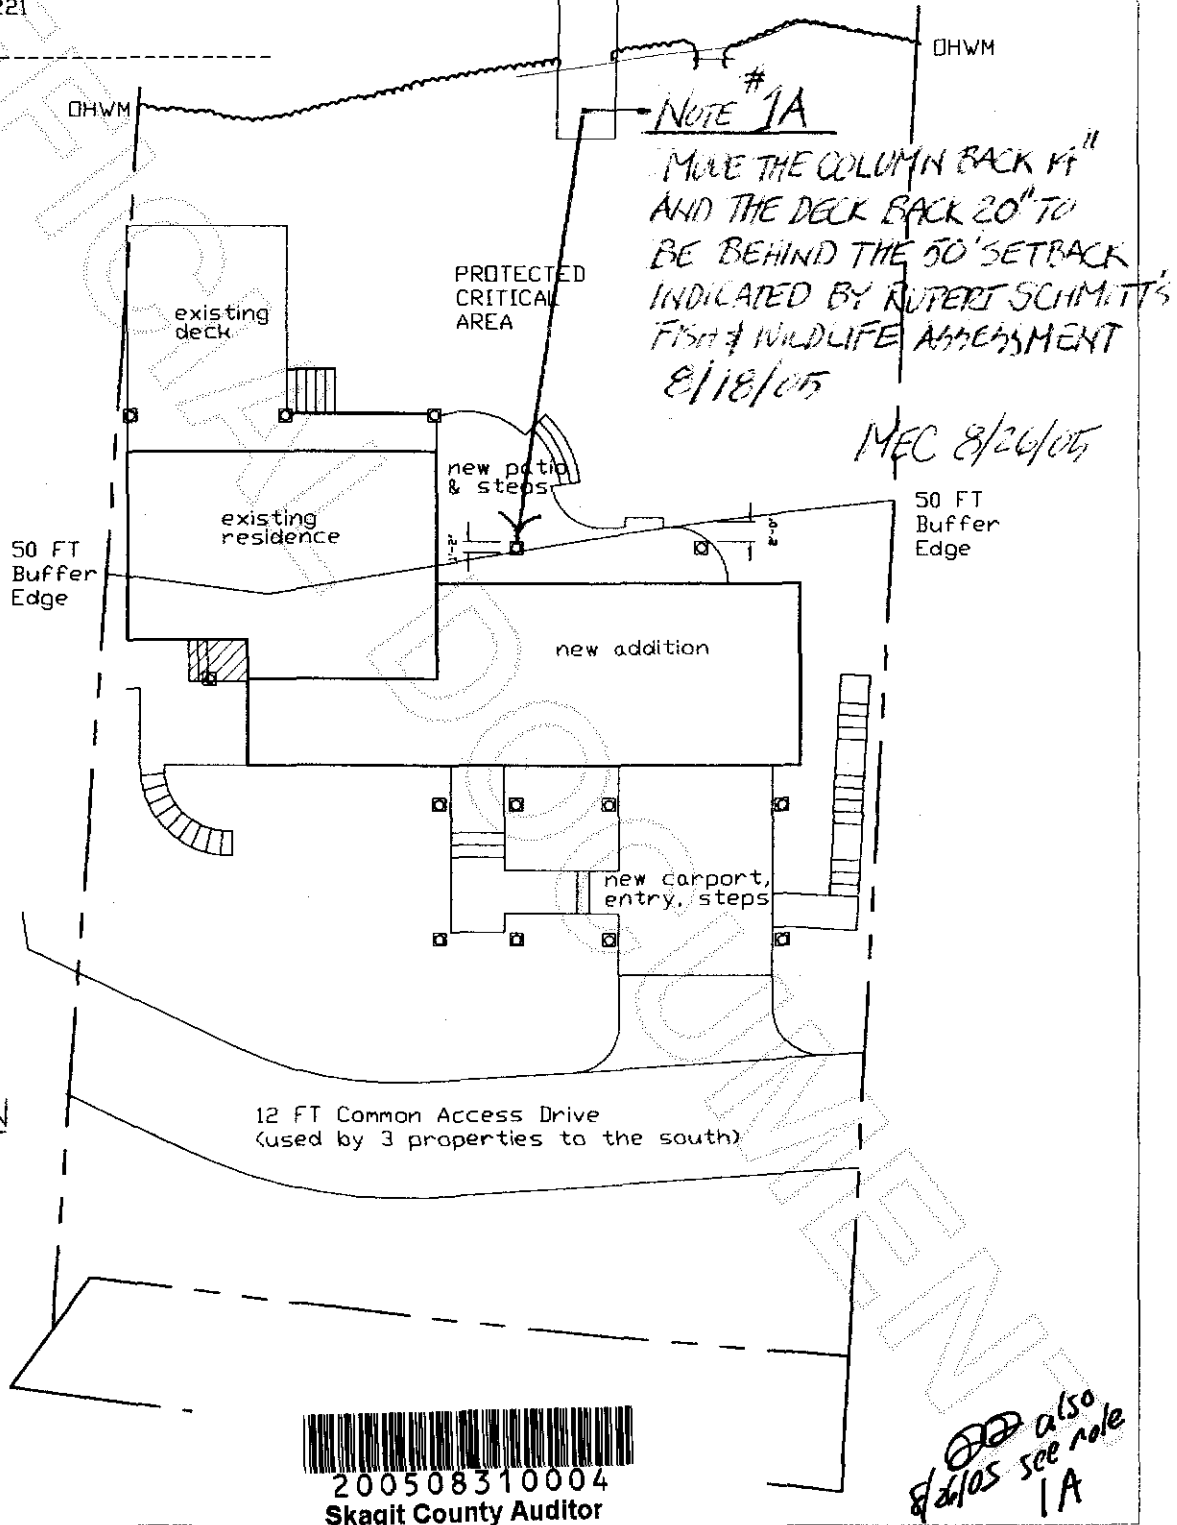 221
OHWM
OHWM
NOTE #1A
MOVE THE COLUMN BACK 14"
AND THE DECK BACK 20" TO
BE BEHIND THE 50' SETBACK
INDICATED BY RUPERT SCHMITT'S
FISH & WILDLIFE ASSESSMENT
8/18/05
MEC 8/26/05
PROTECTED
CRITICAL
AREA
existing
deck
new patio
& steps
existing
residence
1'-2"
2'-0"
50 FT
Buffer
Edge
50 FT
Buffer
Edge
new addition
new carport,
entry, steps
N
12 FT Common Access Drive
(used by 3 properties to the south)
200508310004
Skagit County Auditor
also
8/26/05 see note
1A
DOCUMENT